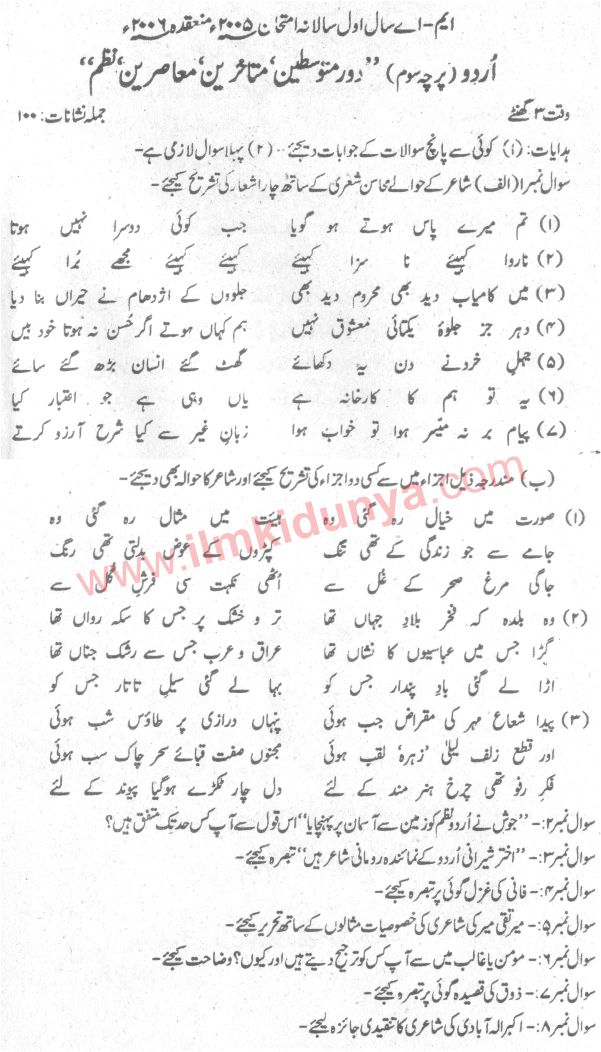 ایم-اے سال اول سالانہ امتحان ۲۰۰۵ء منعقدہ ۲۰۰۶ء
اُردو (پرچہ سوم) "دورِ متوسطین، متاثرین، معاصرین، نظم"
وقت ۳ گھنٹے جملہ نشانات: ۱۰۰
ہدایات: (۱) کوئی سے پانچ سوالات کے جوابات دیجئے- (۲) پہلا سوال لازمی ہے-
سوال نمبر ۱ (الف) شاعر کے حوالے محاسن شعری کے ساتھ چار اشعار کی تشریح کیجئے-
(۱) تم میرے پاس ہوتے ہو گویا جب کوئی دوسرا نہیں ہوتا
(۲) ناروا کہیئے نا سزا کہیئے کہیئے کہیئے مجھے بُرا کہیئے
(۳) میں کامیاب دید بھی محروم دید بھی جلووں کے اژدھام نے حیراں بنا دیا
(۴) دہر جز جلوۂ یکتائی معشوق نہیں ہم کہاں ہوتے اگر حُسن نہ ہوتا خود بیں
(۵) جہلِ خرد نے دن یہ دکھائے گھٹ گئے انساں بڑھ گئے سائے
(۶) یہ تو ہم کا کارخانہ ہے یاں وہی ہے جو اعتبار کیا
(۷) پیام بر نہ میسر ہوا تو خوب ہوا زبانِ غیر سے کیا شرح آرزو کرتے
(ب) مندرجہ ذیل اجزاء میں سے کسی دو اجزاء کی تشریح کیجئے اور شاعر کا حوالہ بھی دیجئے-
(۱) صورت میں خیال رہ گئی وہ ہیئت میں مثال رہ گئی وہ
جامے سے جو زندگی کے تھی تنگ کپڑوں کے عوض بدلتی تھی رنگ
جاگی مرغِ سحر کے غُل سے اُٹھی نکہت سی فرشِ گُل سے
(۲) وہ بلدہ کہ فخر بلادِ جہاں تھا تر و خشک پر جس کا سکہ رواں تھا
گڑا جس میں عباسیوں کا نشاں تھا عراق و عرب جس سے رشک جناں تھا
اڑا لے گئی بادِ پندار جس کو بہا لے گئی سیلِ تاتار جس کو
(۳) پیدا شعاع مہر کی مقراض جب ہوئی پنہاں درازی پر طاؤس شب ہوئی
اور قطع زلف لیلیٰ 'زہرہ' لقب ہوئی مجنوں صفت قبائے سحر چاک سب ہوئی
فکرِ رفو تھی چرخِ ہنر مند کے لئے دل چار ٹکڑے ہوگیا پیوند کے لئے
سوال نمبر ۲:- "جوش نے اُردو نظم کو زمین سے آسمان پر پہنچایا" اس قول سے آپ کس حد تک متفق ہیں؟
سوال نمبر ۳:- "اختر شیرانی اُردو کے نمائندہ رومانی شاعر ہیں" تبصرہ کیجئے-
سوال نمبر ۴:- فانی کی غزل گوئی پر تبصرہ کیجئے-
سوال نمبر ۵:- میر تقی میر کی شاعری کی خصوصیات مثالوں کے ساتھ تحریر کیجئے-
سوال نمبر ۶:- مومن یا غالب میں سے آپ کس کو ترجیح دیتے ہیں اور کیوں؟ وضاحت کیجئے-
سوال نمبر ۷:- ذوق کی قصیدہ گوئی پر تبصرہ کیجئے-
سوال نمبر ۸:- اکبر الہ آبادی کی شاعری کا تنقیدی جائزہ لیجئے-
www.ilmkidunya.com